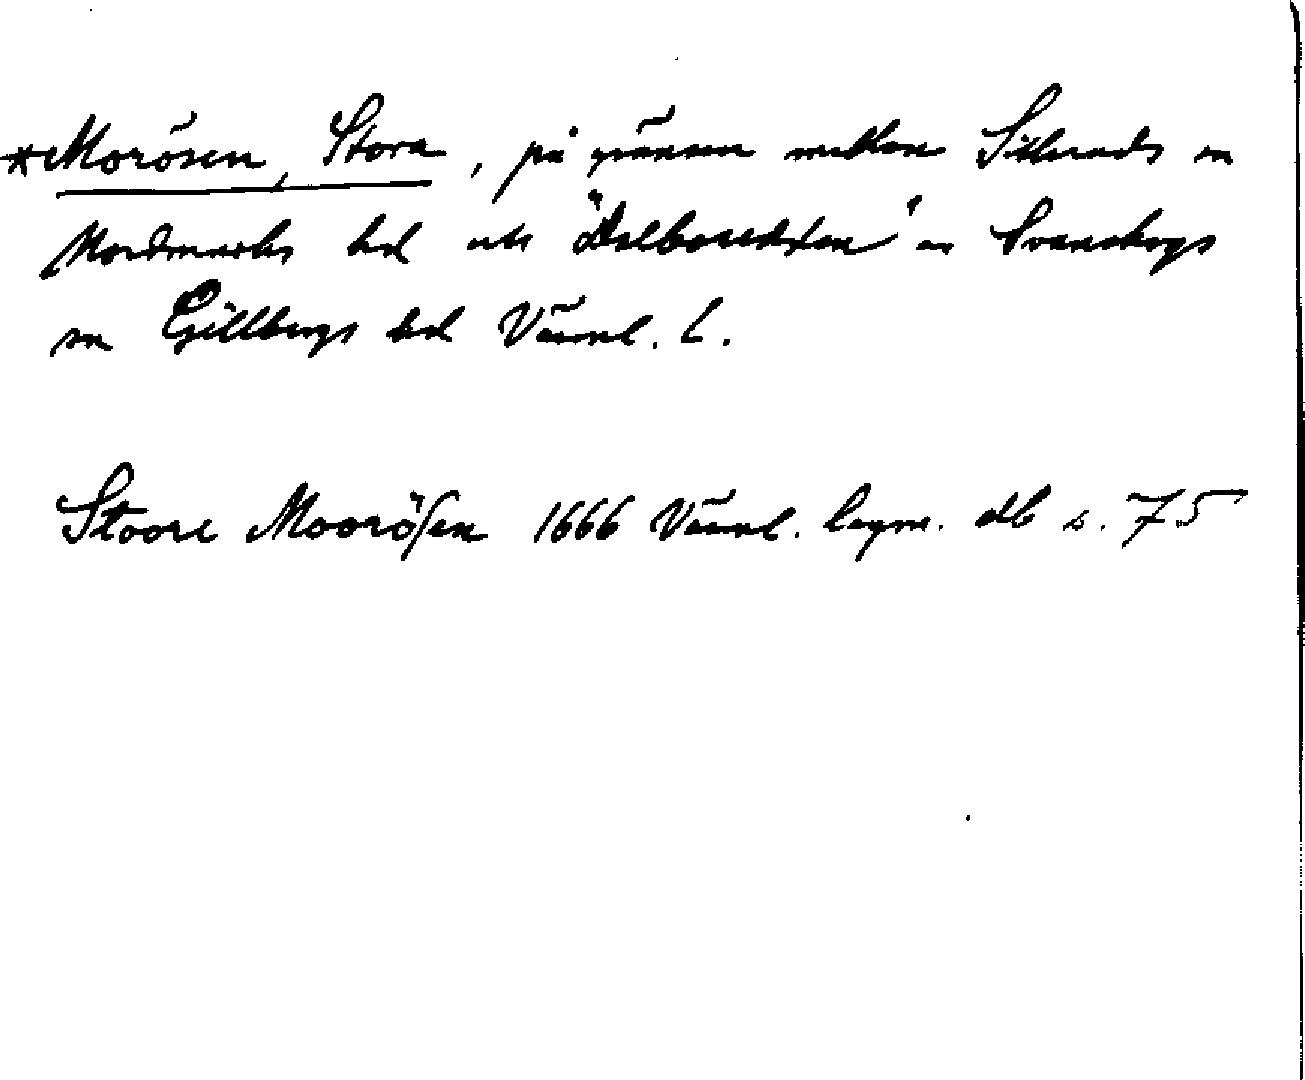 *Morösen, Stora, på gränsen mellan Silleruds sn
Nordmarks hd och "Dalboredden" av Svanskogs
sn Gillbergs hd Värml. l.
Stoore Moorösen 1666 Värml. lagm. db s. 75